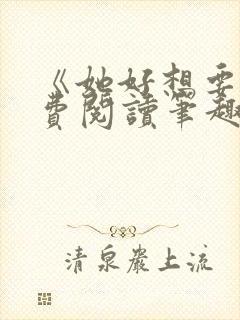 《她好想要
費閱讀筆趣
清泉巖上流